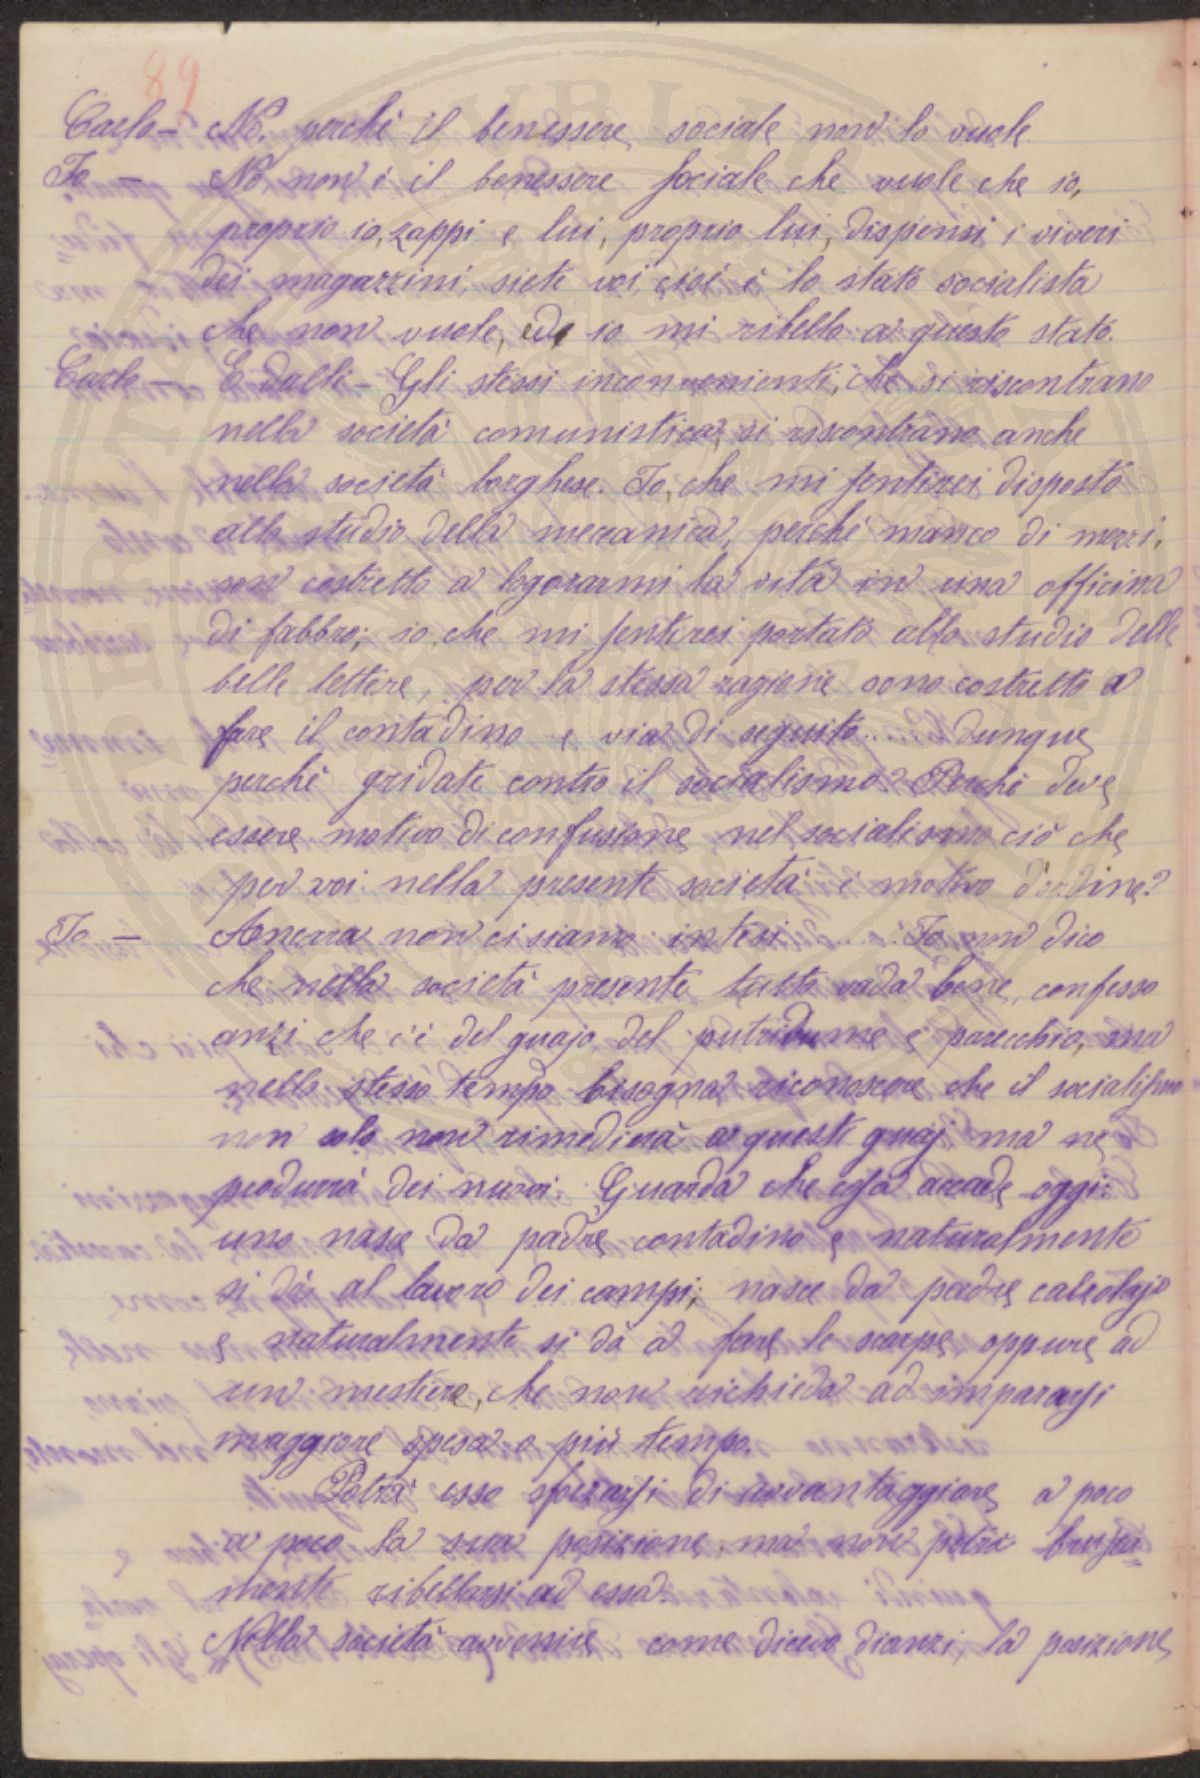 89
Carlo — No, perchè il benessere sociale non lo vuole.
Io — No non è il benessere sociale che vuole che io,
proprio io, zappi e lui, proprio lui, dispensi i viveri
dei magazzini, siete voi, cioè è lo stato socialista
che non vuole, ed io mi ribello a questo stato.
Carlo — E dalli — Gli stessi inconvenienti, che si riscontrano
nella società comunistica, si riscontrano anche
nella società borghese. Io, che mi sentirei disposto
allo studio della meccanica, perchè manco di mezzi,
son costretto a logorarmi la vita in una officina
di fabbro; io, che mi sentirei portato allo studio delle
belle lettere, per la stessa ragione sono costretto a
fare il contadino e via di seguito...... Dunque
perchè gridate contro il socialismo? Perchè deve
essere motivo di confusione nel socialismo ciò che
per voi nella presente società è motivo d'ordine?
Io — Ancora non ci siamo intesi...... Io non dico
che nella società presente tutto vada bene, confesso
anzi che c'è del guajo, del putridume e parecchio, ma
nello stesso tempo bisogna riconoscere che il socialismo
non solo non rimedierà a questi guaj ma ne
produrrà dei nuovi. Guarda che cosa accade oggi:
uno nasce da padre contadino e naturalmente
si dà al lavoro dei campi; nasce da padre calzolajo
e naturalmente si dà a fare le scarpe, oppure ad
un mestiere, che non richieda ad impararsi
maggiore spesa o più tempo.
Potrà esso sforzarsi di avvantaggiare a poco
a poco la sua posizione, ma non potrà brusca-
mente ribellarsi ad essa.
Nella società avvenire come dicevo dianzi, la posizione